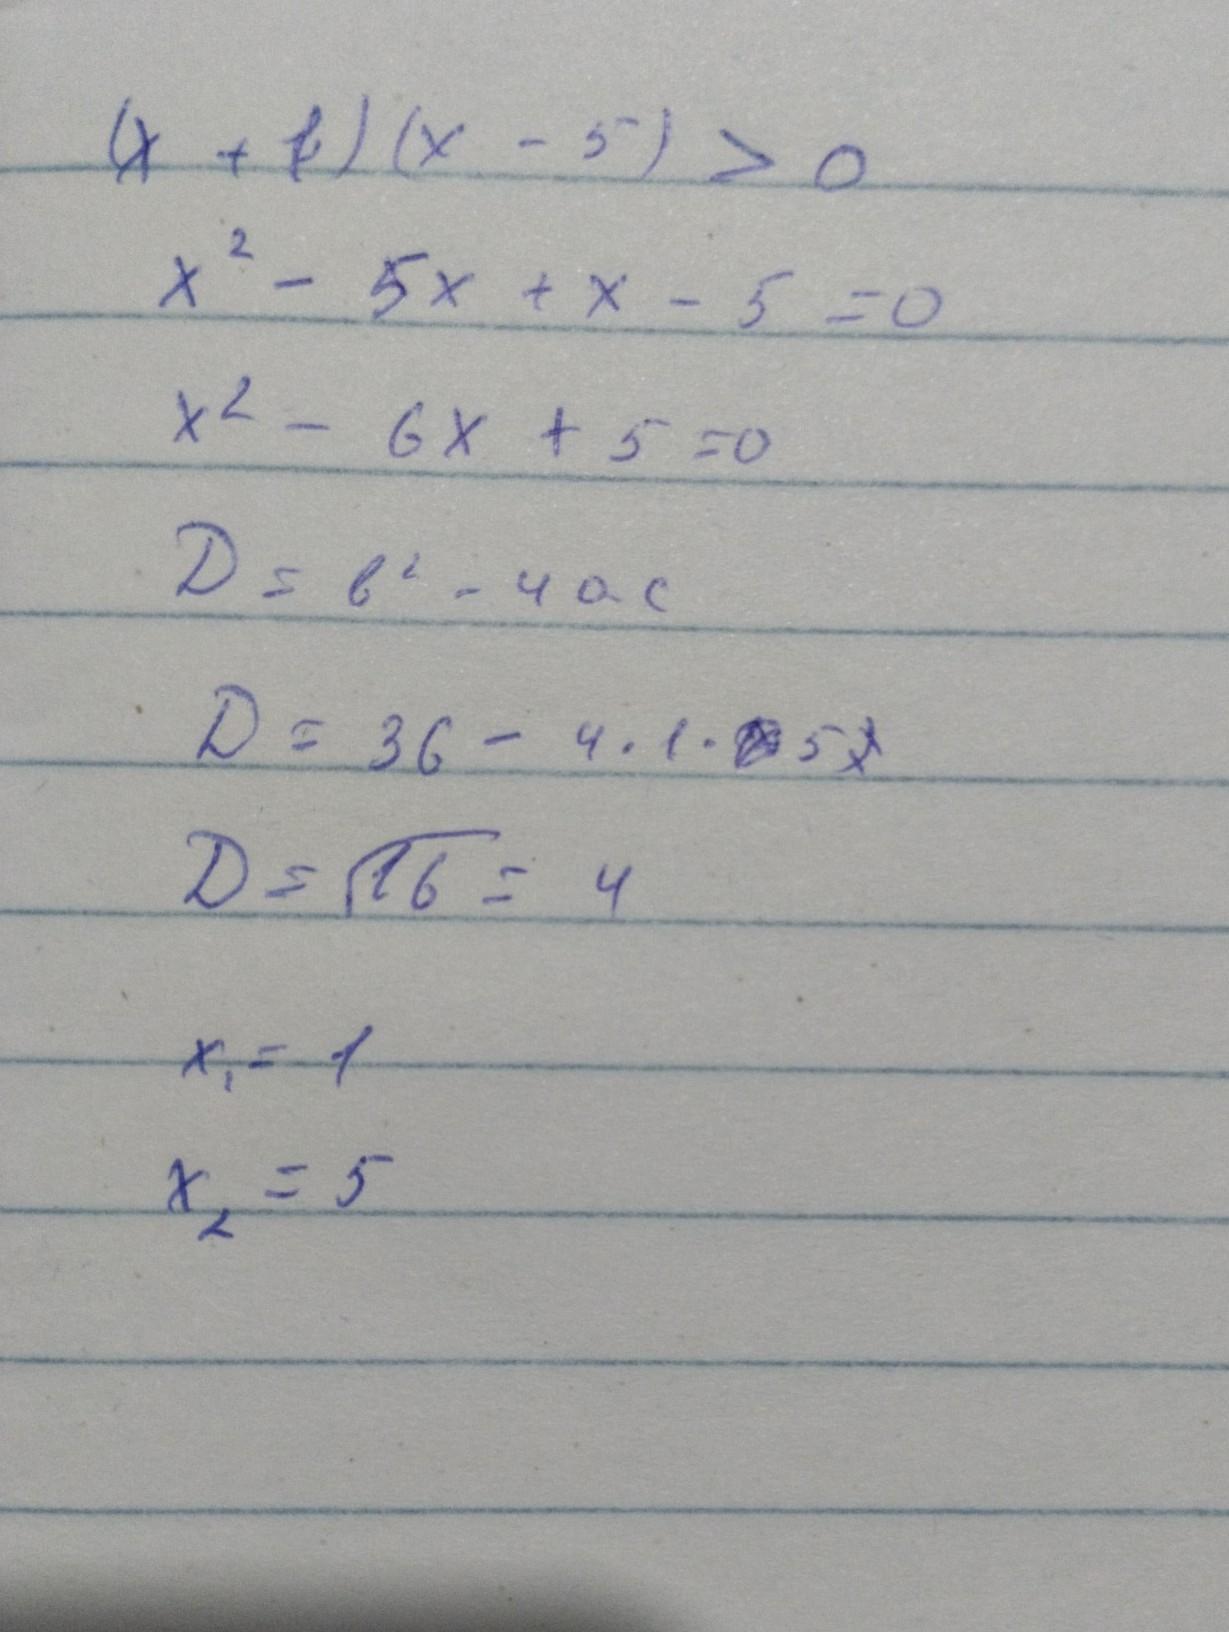 (x + 1)(x - 5) > 0
x² - 5x + x - 5 = 0
x² - 6x + 5 = 0
D = b² - 4ac
D = 36 - 4 · 1 · 5
D = √16 = 4
x₁ = 1
x₂ = 5